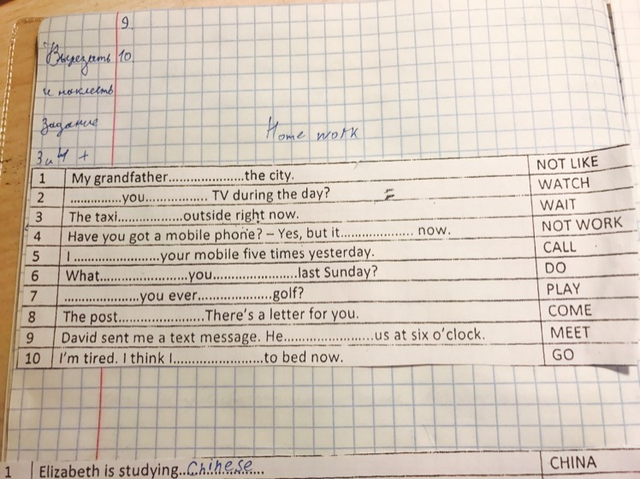 9.
Вырезать 10
и наклеить
Задание
3 и 4 +
Home work
1 My grandfather....................the city. NOT LIKE
2 ..............you................. TV during the day? WATCH
3 The taxi.................outside right now. WAIT
4 Have you got a mobile phone? – Yes, but it................... now. NOT WORK
5 I .......................your mobile five times yesterday. CALL
6 What......................you.......................last Sunday? DO
7 ....................you ever....................golf? PLAY
8 The post.......................There's a letter for you. COME
9 David sent me a text message. He........................us at six o'clock. MEET
10 I'm tired. I think I........................to bed now. GO
1 Elizabeth is studying..Chinese... CHINA